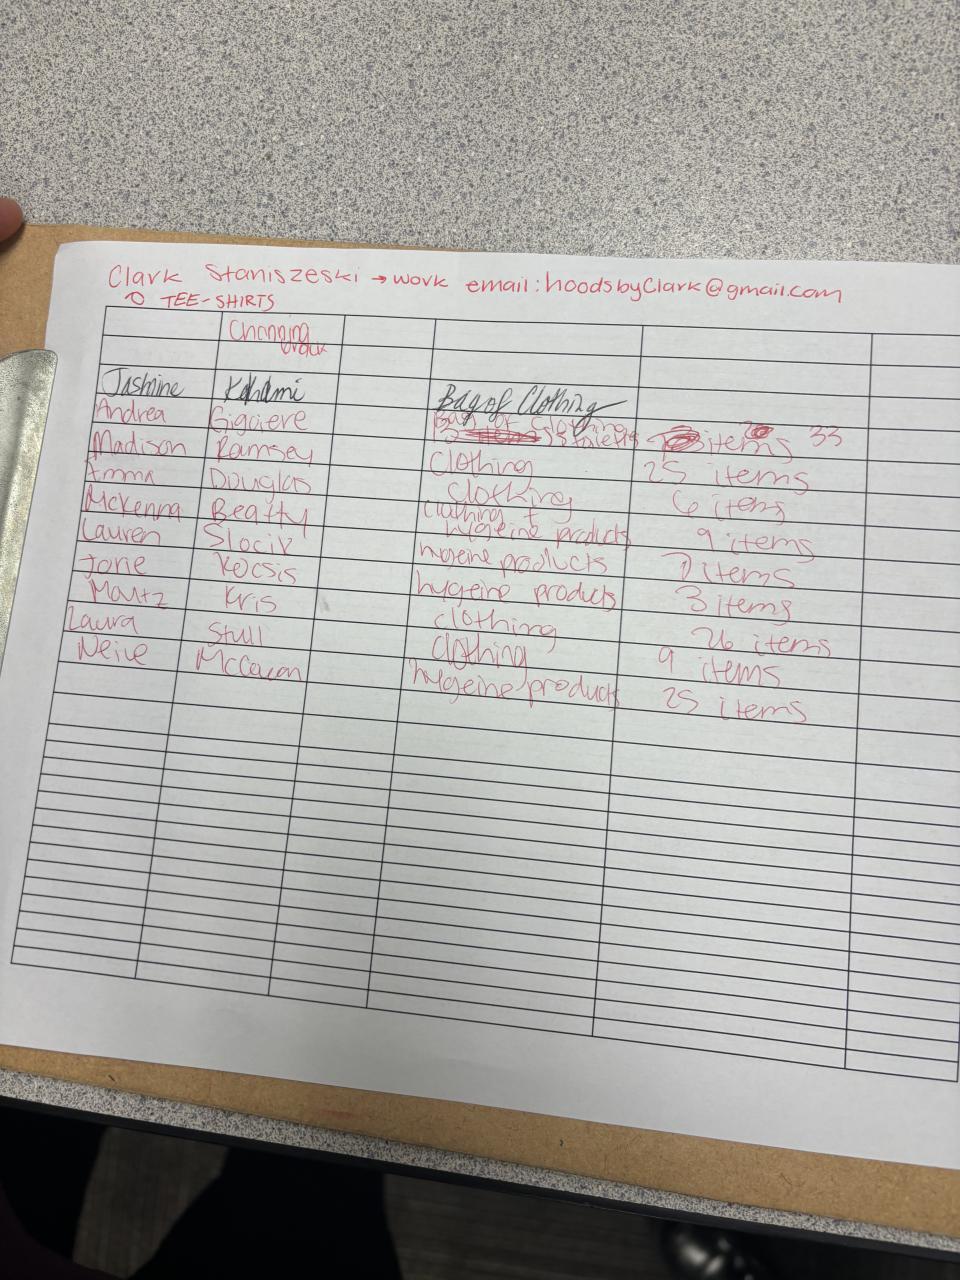 Clark Staniszeski → work email: hoodsbyClark@gmail.com
TEE-SHIRTS
Changing
Jasmine Bag of Clothing
Andrea Gigaiere Bag of Clothing
items 33
Madison Ramsey Clothing 25 items
Emma Douglas Clothing 6 items
McKenna Beatty Clothing +
hygeine products 9 items
Lauren hygeine products 7 items
Jorie Kocsis hygeine products 3 items
Martz Kris clothing 26 items
Laura Stull Clothing 9 items
Neive hygeine products 25 items